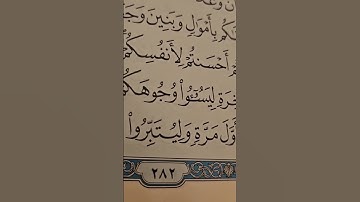 كُم بِأَمْوَٰلٍ وَبَنِينَ وَجَ
أَحْسَنتُمْ لِأَنفُسِكُمْ
خِرَةِ لِيَسُـُٔوا۟ وُجُوهَكُ
أَوَّلَ مَرَّةٍ وَلِيُتَبِّرُوا۟
٢٨٢